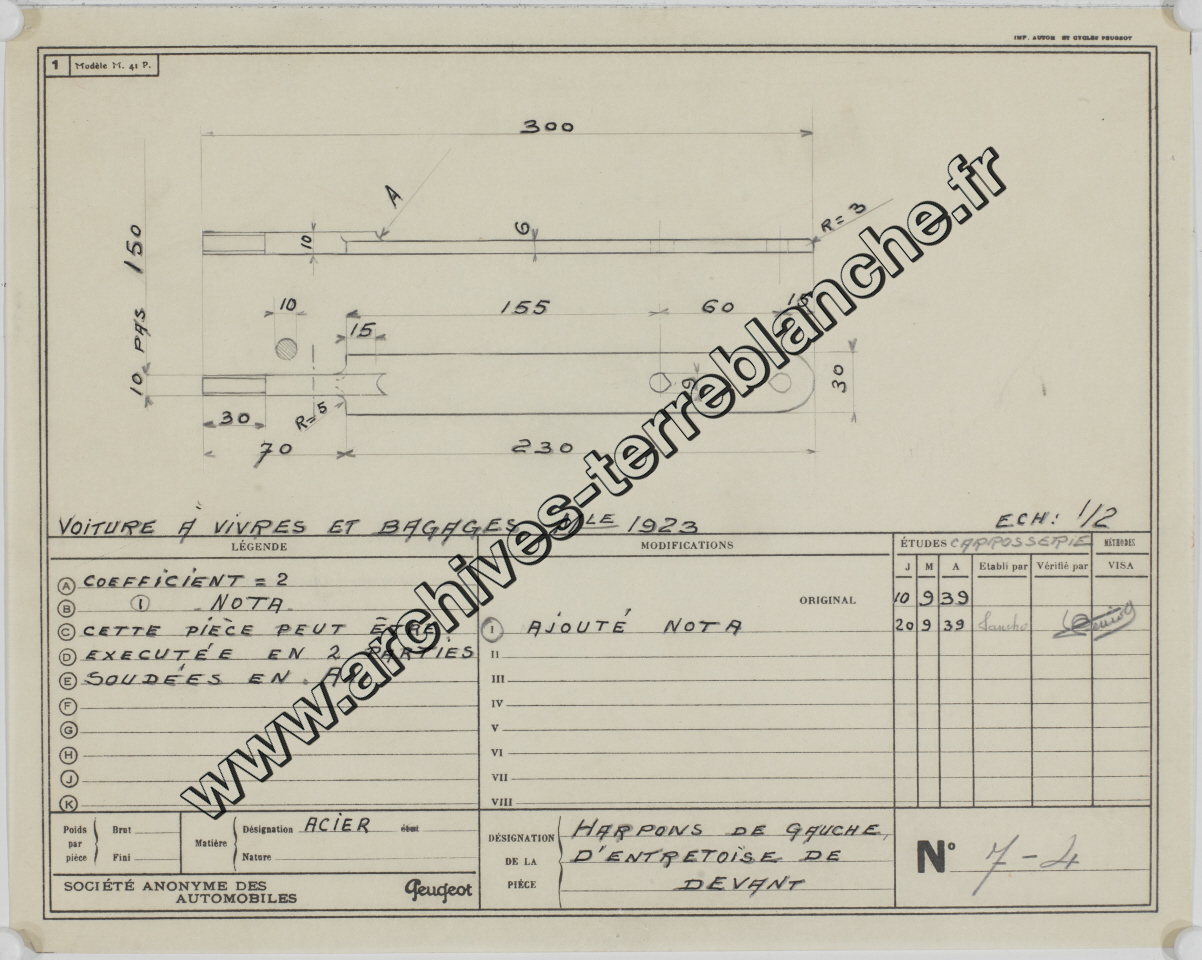 IMP. AUTOM ET CYCLES PEUGEOT
1 Modèle M. 41 P.
300
A
R=3
10
6
10 PAS 150
10
155
60
15
15
9
30
R=5
30
70
230
VOITURE À VIVRES ET BAGAGES 1923
ECH: 1/2
LÉGENDE
MODIFICATIONS
ÉTUDES CARROSSERIE
MÉTHODES
J M A Etabli par Vérifié par VISA
A COEFFICIENT = 2
ORIGINAL
10 9 39
B 1 NOTA
C CETTE PIÈCE PEUT ÊTRE
1 AJOUTÉ NOTA
20 9 39 Sancho
D EXECUTÉE EN 2 PARTIES
II
E SOUDÉES EN A
III
F
IV
G
V
H
VI
J
VII
K
VIII
Poids par pièce
Brut
Fini
Matière
Désignation ACIER
Nature
DÉSIGNATION DE LA PIÈCE
HARPONS DE GAUCHE,
D'ENTRETOISE DE
DEVANT
N° 7-4
SOCIÉTÉ ANONYME DES
AUTOMOBILES
Peugeot
www.archives-terreblanche.fr